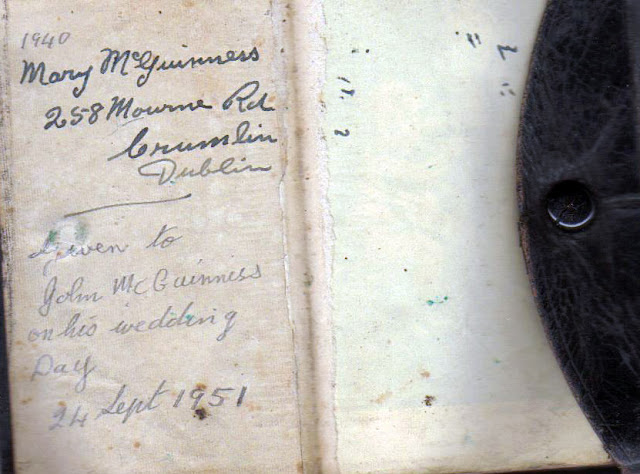 1940
Mary McGuinness
258 Mourne Rd
Crumlin
Dublin
Given to
John McGuinness
on his wedding
Day
24 Sept 1951